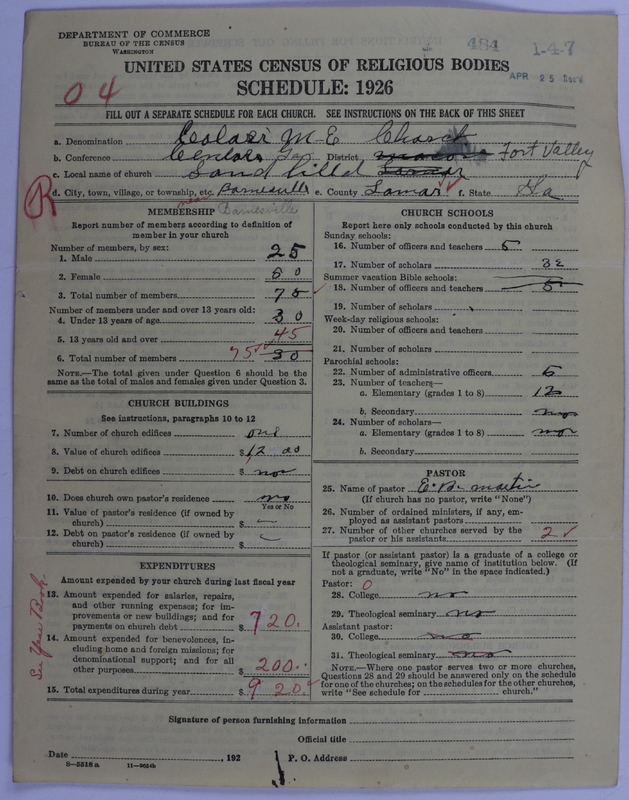 DEPARTMENT OF COMMERCE
BUREAU OF THE CENSUS
WASHINGTON
484
1-4-7
APR 25
UNITED STATES CENSUS OF RELIGIOUS BODIES
SCHEDULE: 1926
04
FILL OUT A SEPARATE SCHEDULE FOR EACH CHURCH. SEE INSTRUCTIONS ON THE BACK OF THIS SHEET
a. Denomination M-E Church
b. Conference District Fort Valley
c. Local name of church Sand
R
d. City, town, village, or township, etc. Barnesville e. County Lamar f. State Ga
near Barnesville
MEMBERSHIP
Report number of members according to definition of member in your church
Number of members, by sex:
1. Male 25
2. Female 50
3. Total number of members 75
Number of members under and over 13 years old:
4. Under 13 years of age 30
5. 13 years old and over 45
6. Total number of members 75 30
NOTE.—The total given under Question 6 should be
the same as the total of males and females given under Question 3.
CHURCH BUILDINGS
See instructions, paragraphs 10 to 12
7. Number of church edifices one
8. Value of church edifices $12 00
9. Debt on church edifices $
10. Does church own pastor's residence no
Yes or No
11. Value of pastor's residence (if owned by
church) $
12. Debt on pastor's residence (if owned by
church) $
EXPENDITURES
Amount expended by your church during last fiscal year
13. Amount expended for salaries, repairs,
and other running expenses; for im-
provements or new buildings; and for
payments on church debt $ 720.
14. Amount expended for benevolences, in-
cluding home and foreign missions; for
denominational support; and for all
other purposes $ 200.
15. Total expenditures during year $ 920.
See Year Book.
CHURCH SCHOOLS
Report here only schools conducted by this church
Sunday schools:
16. Number of officers and teachers 5
17. Number of scholars 32
Summer vacation Bible schools:
18. Number of officers and teachers 5
19. Number of scholars
Week-day religious schools:
20. Number of officers and teachers
21. Number of scholars
Parochial schools:
22. Number of administrative officers
23. Number of teachers—
a. Elementary (grades 1 to 8) 12
b. Secondary
24. Number of scholars—
a. Elementary (grades 1 to 8)
b. Secondary
PASTOR
25. Name of pastor Martin
(If church has no pastor, write "None")
26. Number of ordained ministers, if any, em-
ployed as assistant pastors
27. Number of other churches served by the
pastor or his assistants 2
If pastor (or assistant pastor) is a graduate of a college or
theological seminary, give name of institution below. (If
not a graduate, write "No" in the space indicated.)
Pastor: 0
28. College no
29. Theological seminary no
Assistant pastor:
30. College no
31. Theological seminary no
NOTE.—Where one pastor serves two or more churches,
Questions 28 and 29 should be answered only on the schedule
for one of the churches; on the schedules for the other churches,
write "See schedule for church."
Signature of person furnishing information
Official title
Date , 192 P. O. Address
S—5518 a 11—9024b